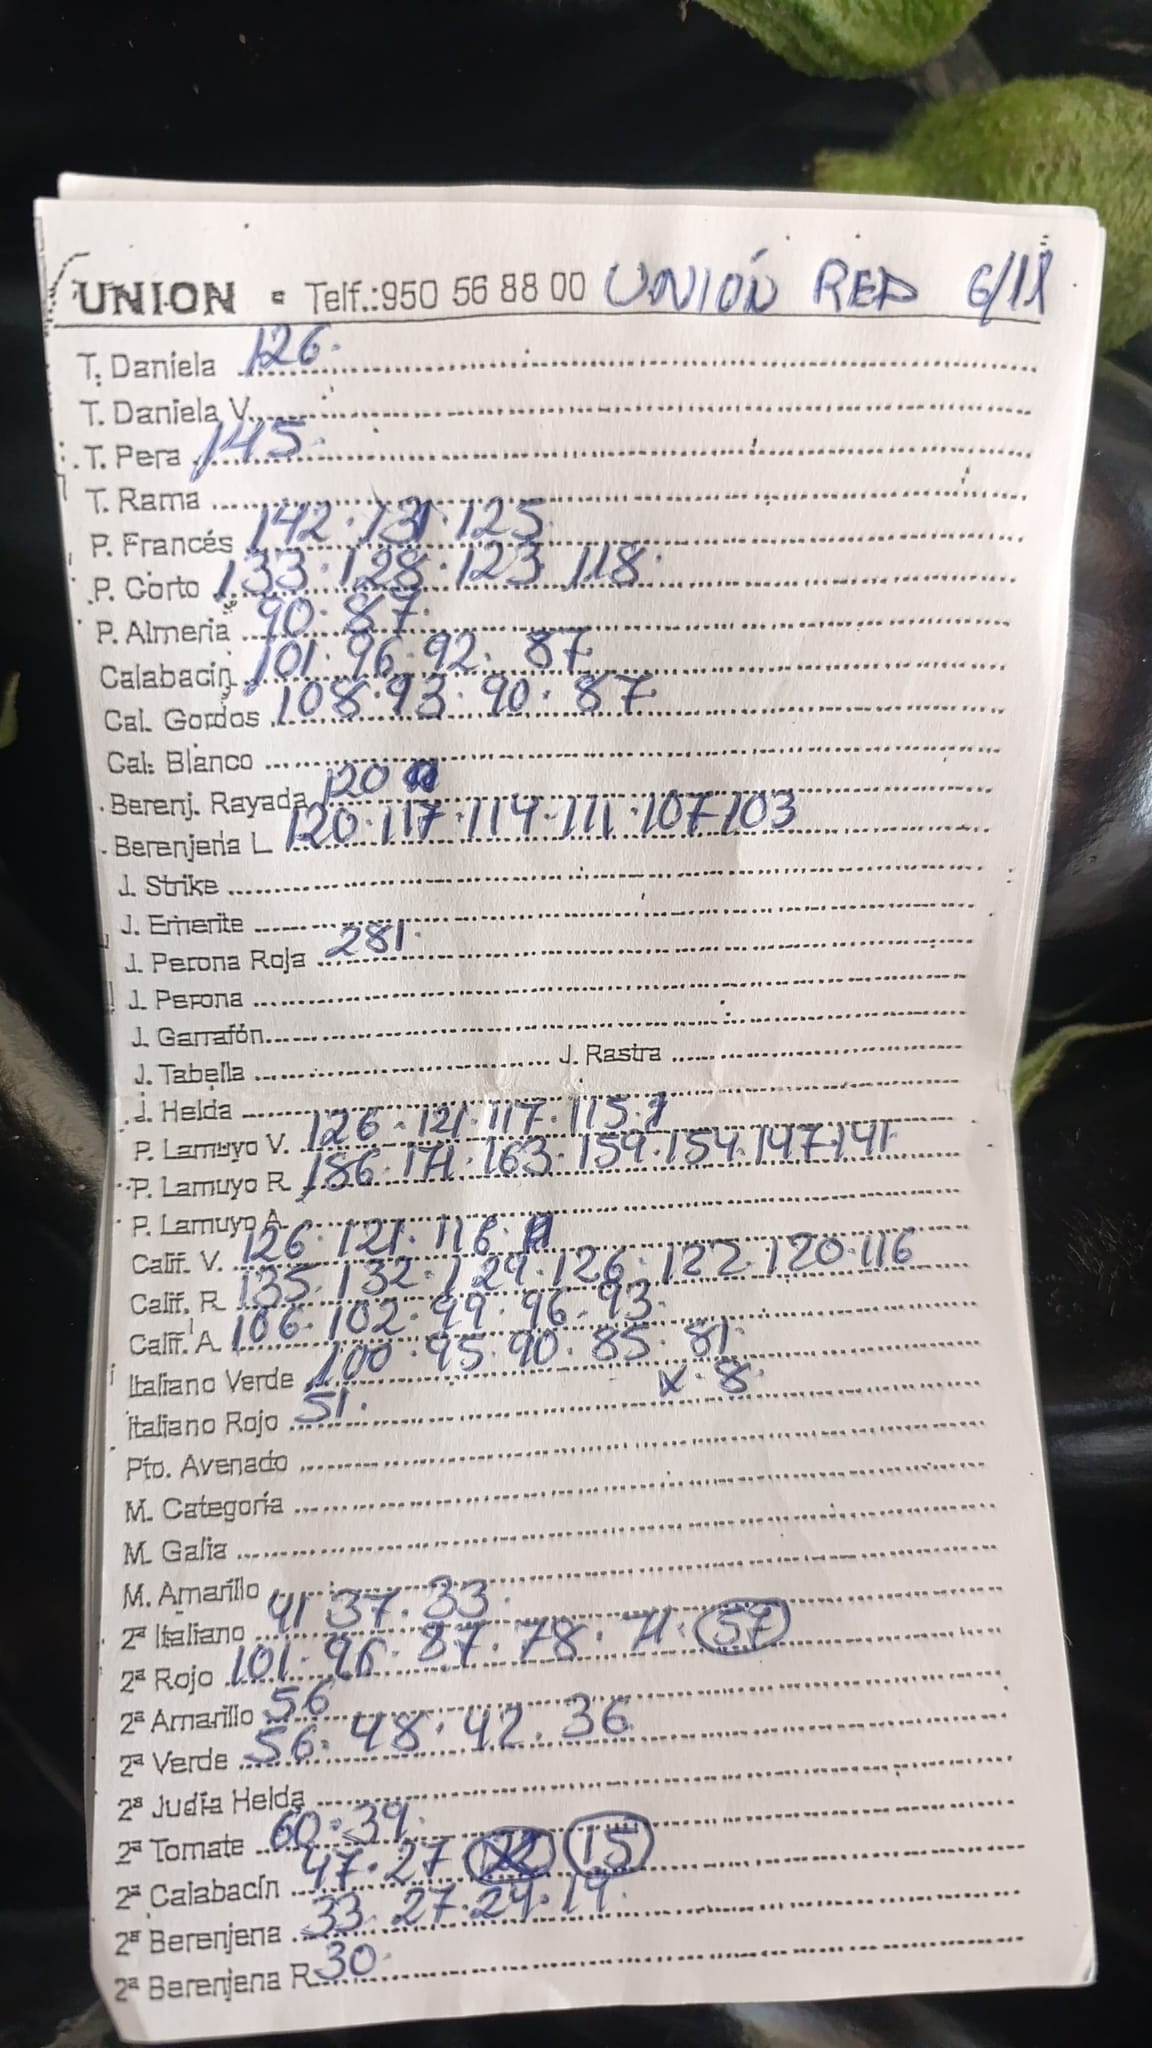 UNION - Telf.:950 56 88 00 UNIÓN RED 6/11
T. Daniela 126.
T. Daniela V.
T. Pera 145.
T. Rama
P. Francés 142.131.125
P. Corto 133.128.123 118.
P. Almeria 90.87.
Calabacín 101.96.92. 87.
Cal. Gordos 108.93.90.87.
Cal. Blanco
Berenj. Rayada 120
Berenjena L. 120.117.114.111.107.103
J. Strike
J. Emerite
J. Perona Roja 281.
J. Perona
J. Garrafón
J. Tabella J. Rastra
J. Helda
P. Lamuyo V. 126.121.117.115.
P. Lamuyo R. 186.171.163.159.154.147.141.
P. Lamuyo A.
Calif. V. 126.121.116.
Calif. R. 135.132.129.126.122.120.116
Calif. A. 106.102.99.96.93.
Italiano Verde 100.95.90.85.81.
Italiano Rojo 51. x.8.
Pto. Avenado
M. Categoría
M. Galia
M. Amarillo
2ª Italiano 41 37.33.
2ª Rojo 101.96.87.78.71.57
2ª Amarillo 56
2ª Verde 56.48.42.36
2ª Judía Helda
2ª Tomate 60.39.
2ª Calabacín 47.27 15
2ª Berenjena 33.27.24.19.
2ª Berenjena R. 30.